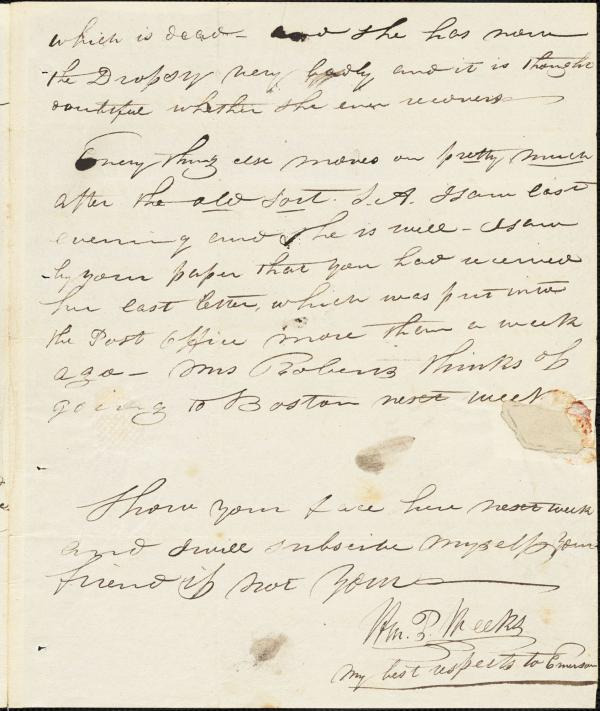 which is dead - and she has now
the Dropsy very badly and it is thought
doubtful whether she ever recovers
Every thing else moves on pretty much
after the old sort. S.A. I saw last
evening and she is well - I saw
by your paper that you had received
her last letter, which was put into
the Post Office more than a week
ago - Mrs Robens thinks of
going to Boston next week
Show your face here next week
and I will subscribe myself your
friend if not your
Wm. P. Weeks
My best respects to Emerson